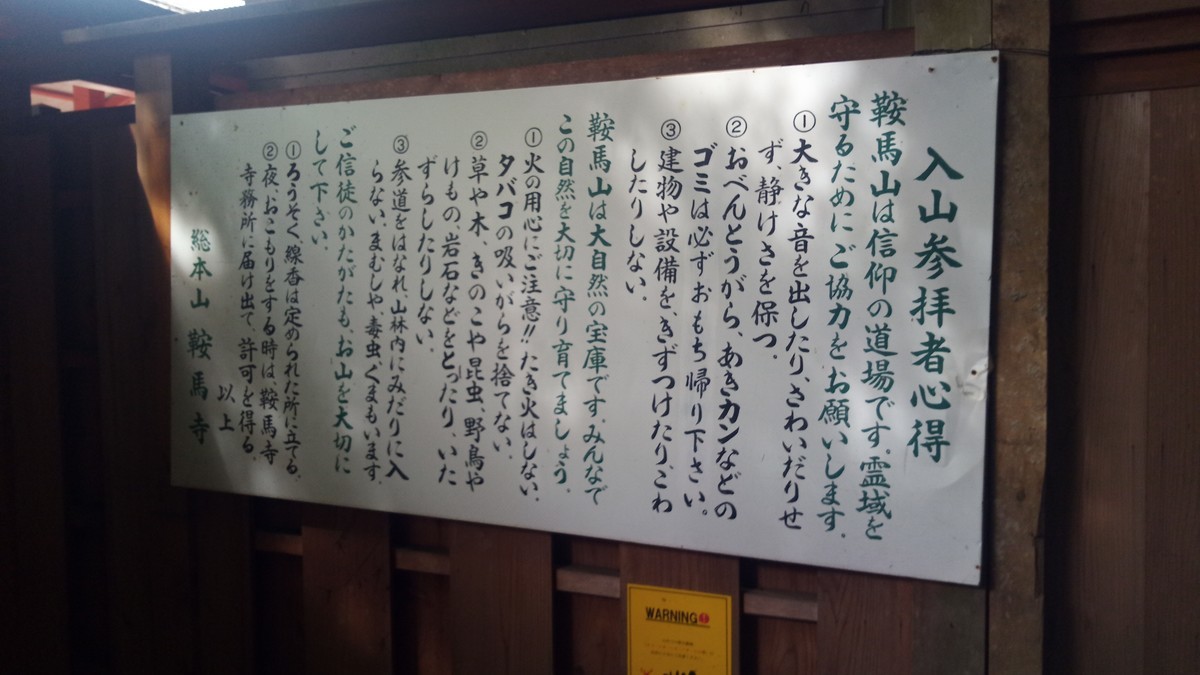 入山参拝者心得
鞍馬山は信仰の道場です。霊域を
守るためにご協力をお願いします。
①大きな音を出したり、さわいだりせ
ず、静けさを保つ。
②おべんとうがら、あきカンなどの
ゴミは必ずおもち帰り下さい。
③建物や設備を、きずつけたり、こわ
したりしない。
鞍馬山は大自然の宝庫です。みんなで
この自然を大切に守り育てましょう。
①火の用心にご注意!!たき火はしない。
タバコの吸いがらを捨てない。
②草や木、きのこや昆虫、野鳥や
けもの、岩石などをとったり、いた
ずらしたりしない。
③参道をはなれ、山林内にみだりに入
らない、まむしや、毒虫、くまもいます。
ご信徒のかたがたも、お山を大切に
して下さい。
①ろうそく、線香は定められた所に立てる。
②夜、おこもりをする時は、鞍馬寺
寺務所に届け出て、許可を得る。
以上
総本山 鞍馬寺
WARNING